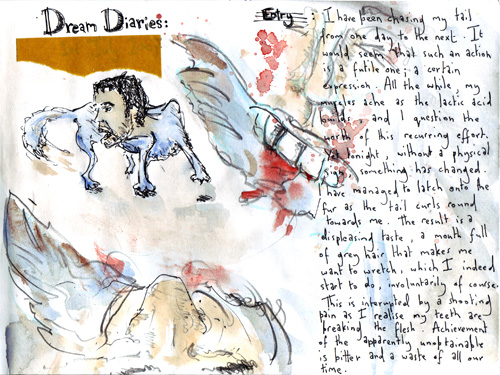 Dream Diaries:
Entry : I have been chasing my tail
from one day to the next. It
would seem that such an action
is a futile one; a certain
expression. All the while, my
muscles ache as the lactic acid
builds, and I question the
worth of this recurring effort.
Yet tonight, without a physical
sign, something has changed.
I have managed to latch onto the
fur as the tail curls round
towards me. The result is a
displeasing taste, a mouth full
of grey hair that makes me
want to wretch, which I indeed
start to do, involuntarily of course.
This is interupted by a shooting
pain as I realise my teeth are
breaking the flesh. Achievement
of the apparently unobtainable
is bitter and a waste of all our
time.